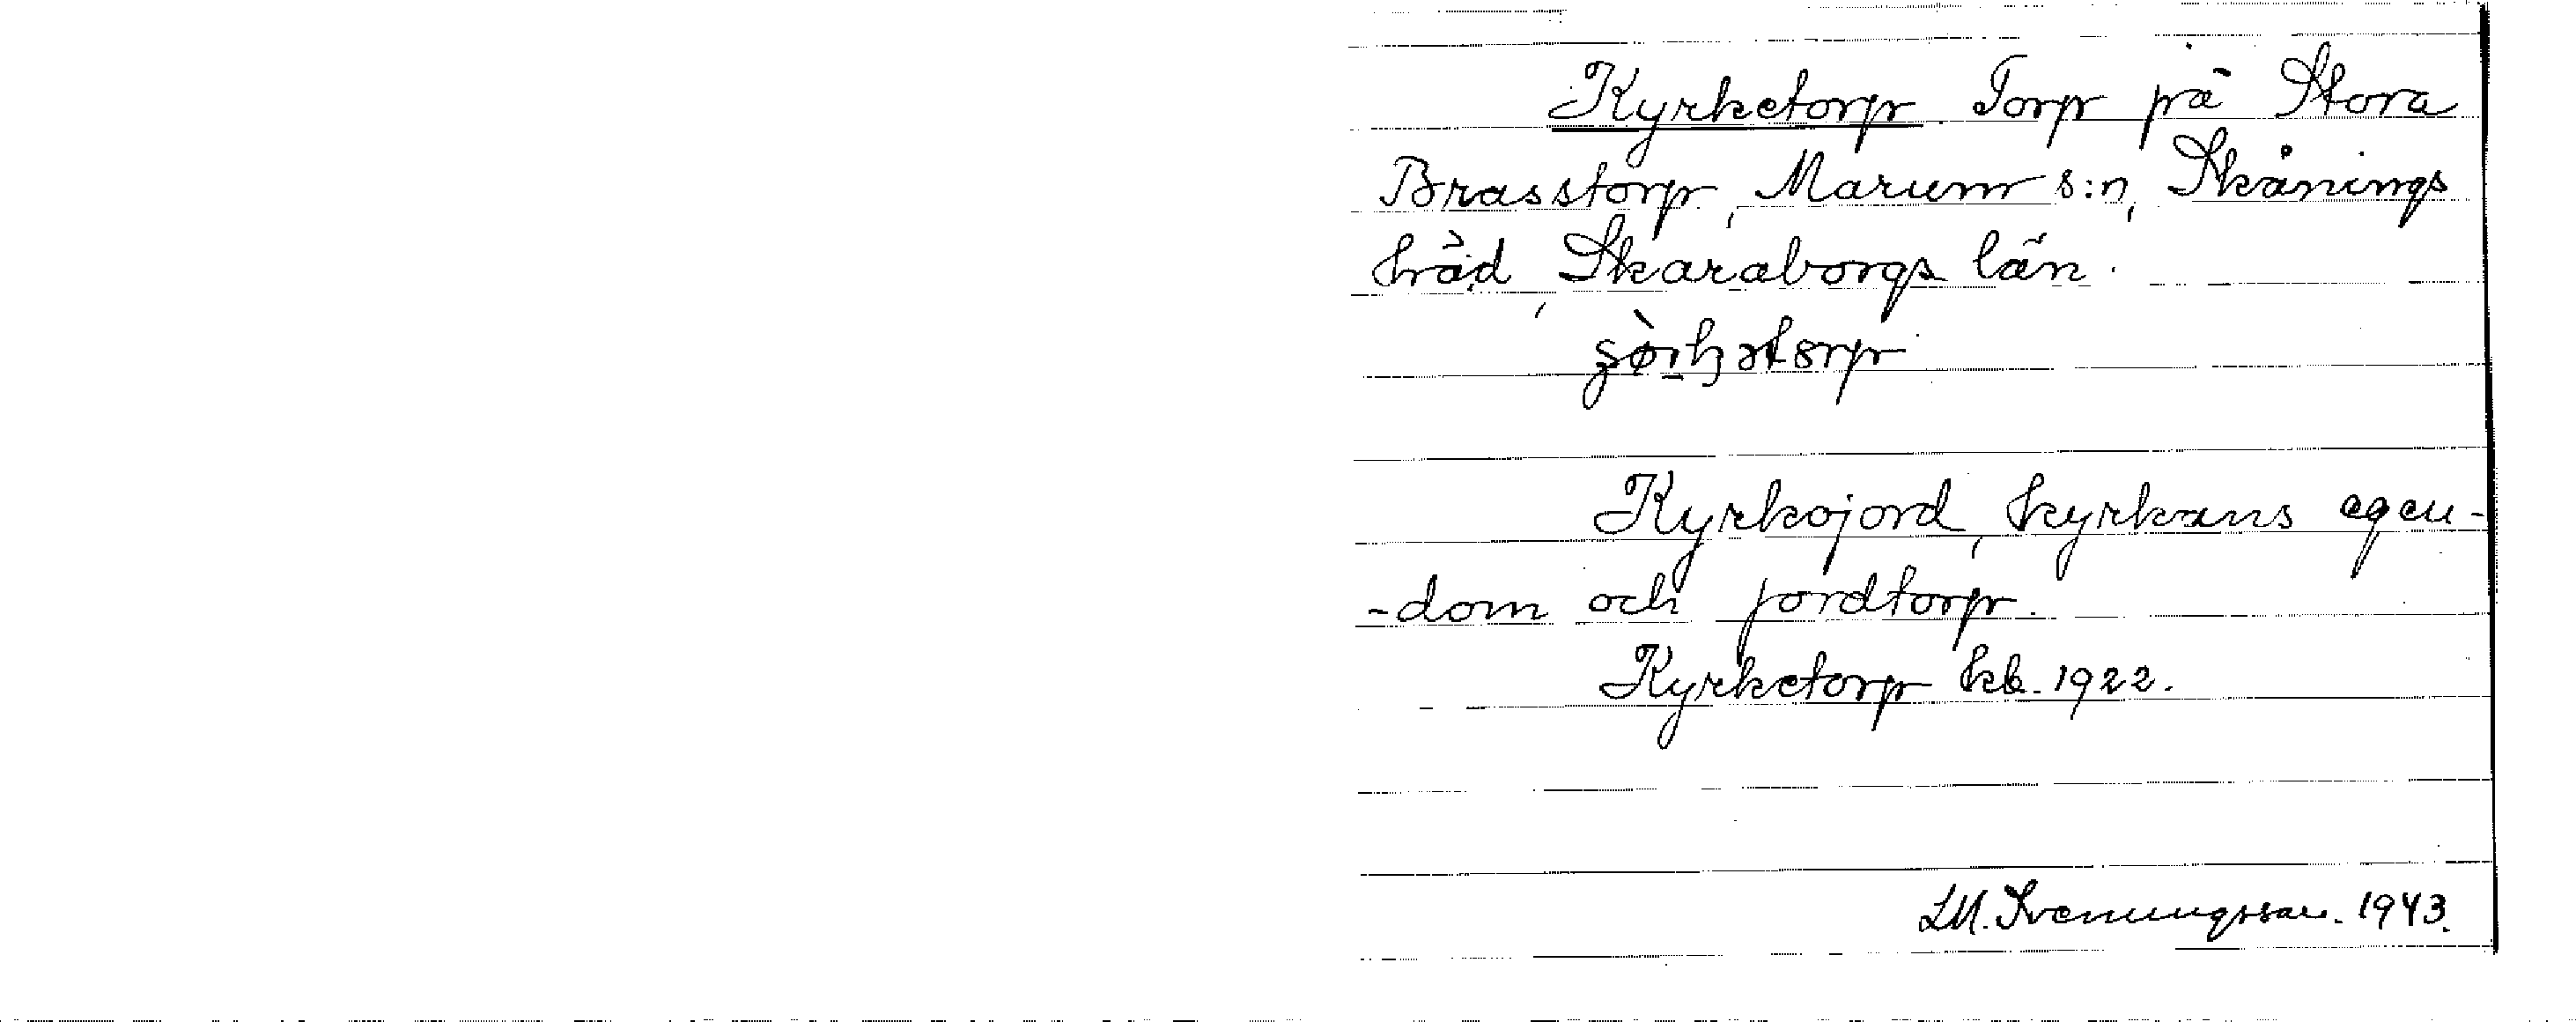 Kyrketorp. Torp på Stora
Brasstorp, Marum s:n, Skånings
hräd, Skaraborgs län.
Kyrkojord, kyrkans egen-
-dom och jordtorp.
Kyrketorp kb. 1922.
LM. Svenungsson. 1943.